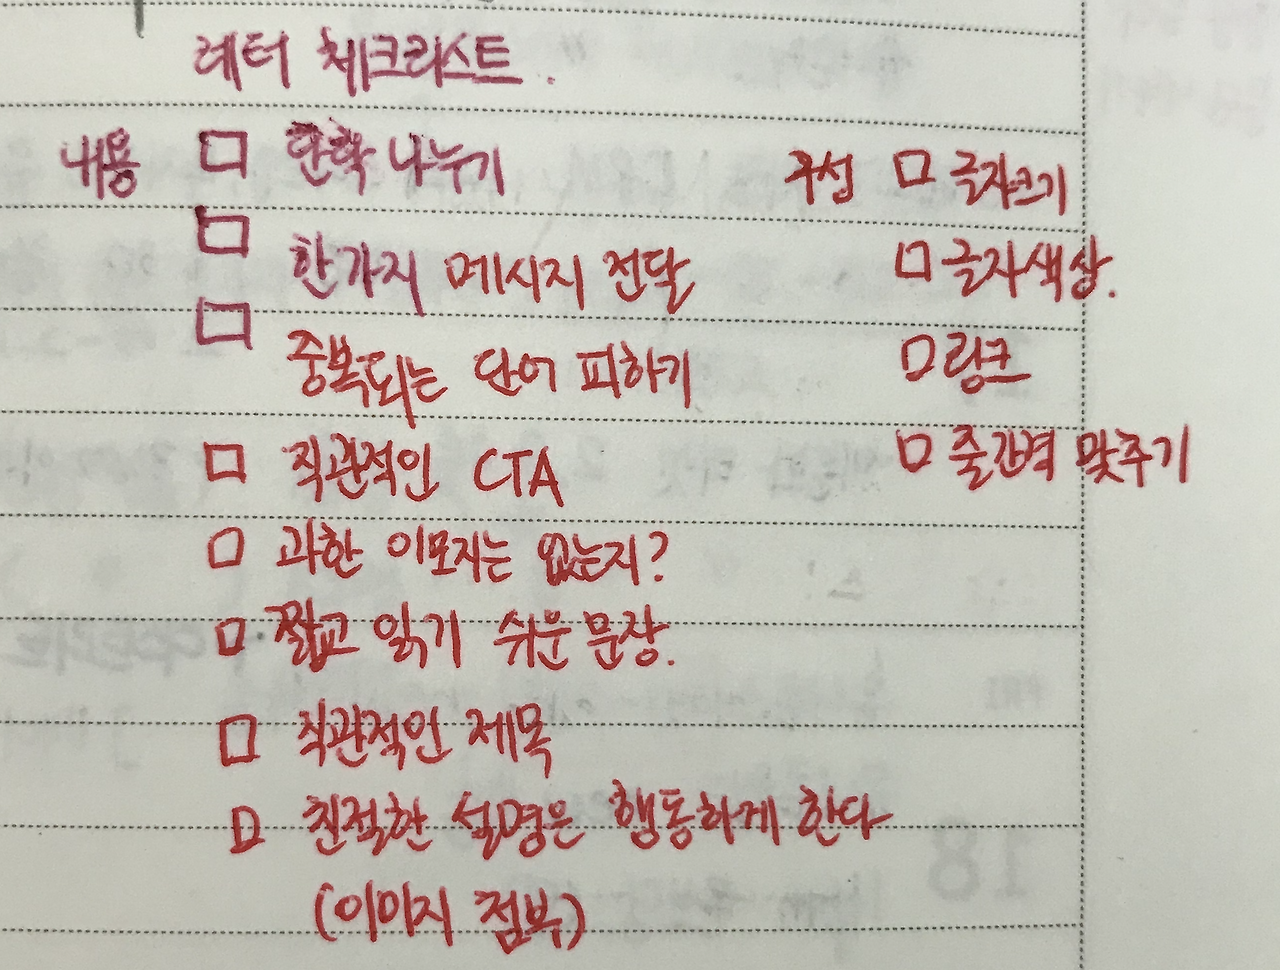 레터 체크리스트.
내용 □ 단락 나누기
□ 한가지 메시지 전달
□ 중복되는 단어 피하기
□ 직관적인 CTA
□ 과한 이모지는 없는지?
□ 짧고 읽기 쉬운 문장.
□ 직관적인 제목
□ 친절한 설명은 행동하게 한다
(이미지 첨부)
구성 □ 글자크기
□ 글자색상.
□ 링크
□ 줄간격 맞추기
18